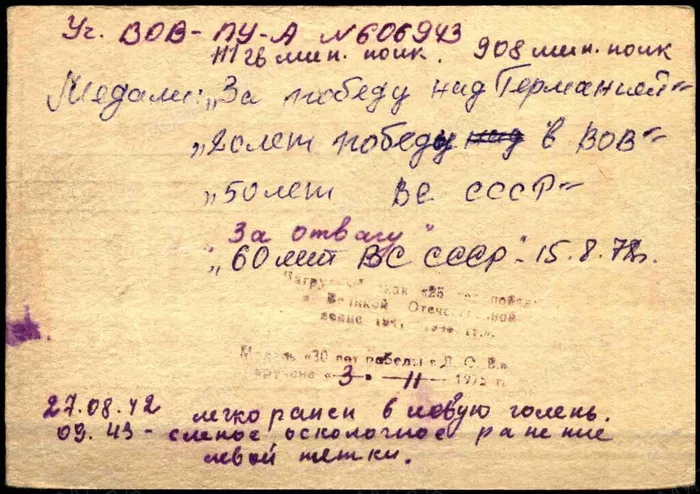 Уч. ВОВ - ПУ-А № 606943
1126 мин. полк. 908 мин. полк
Медали: „За победу над Германией“
„20 лет победы над в ВОВ“
„50 лет ВС СССР“
За отвагу“
„60 лет ВС СССР“ - 15.8.78г.
знак «25 лет победы
в Великой Отечественной
войне
Медаль «30 лет победы в В. О. В.»
вручена «3» II 1975 г.
27.08.42 легко ранен в левую голень.
09.43 - слепое осколочное ранение
левой